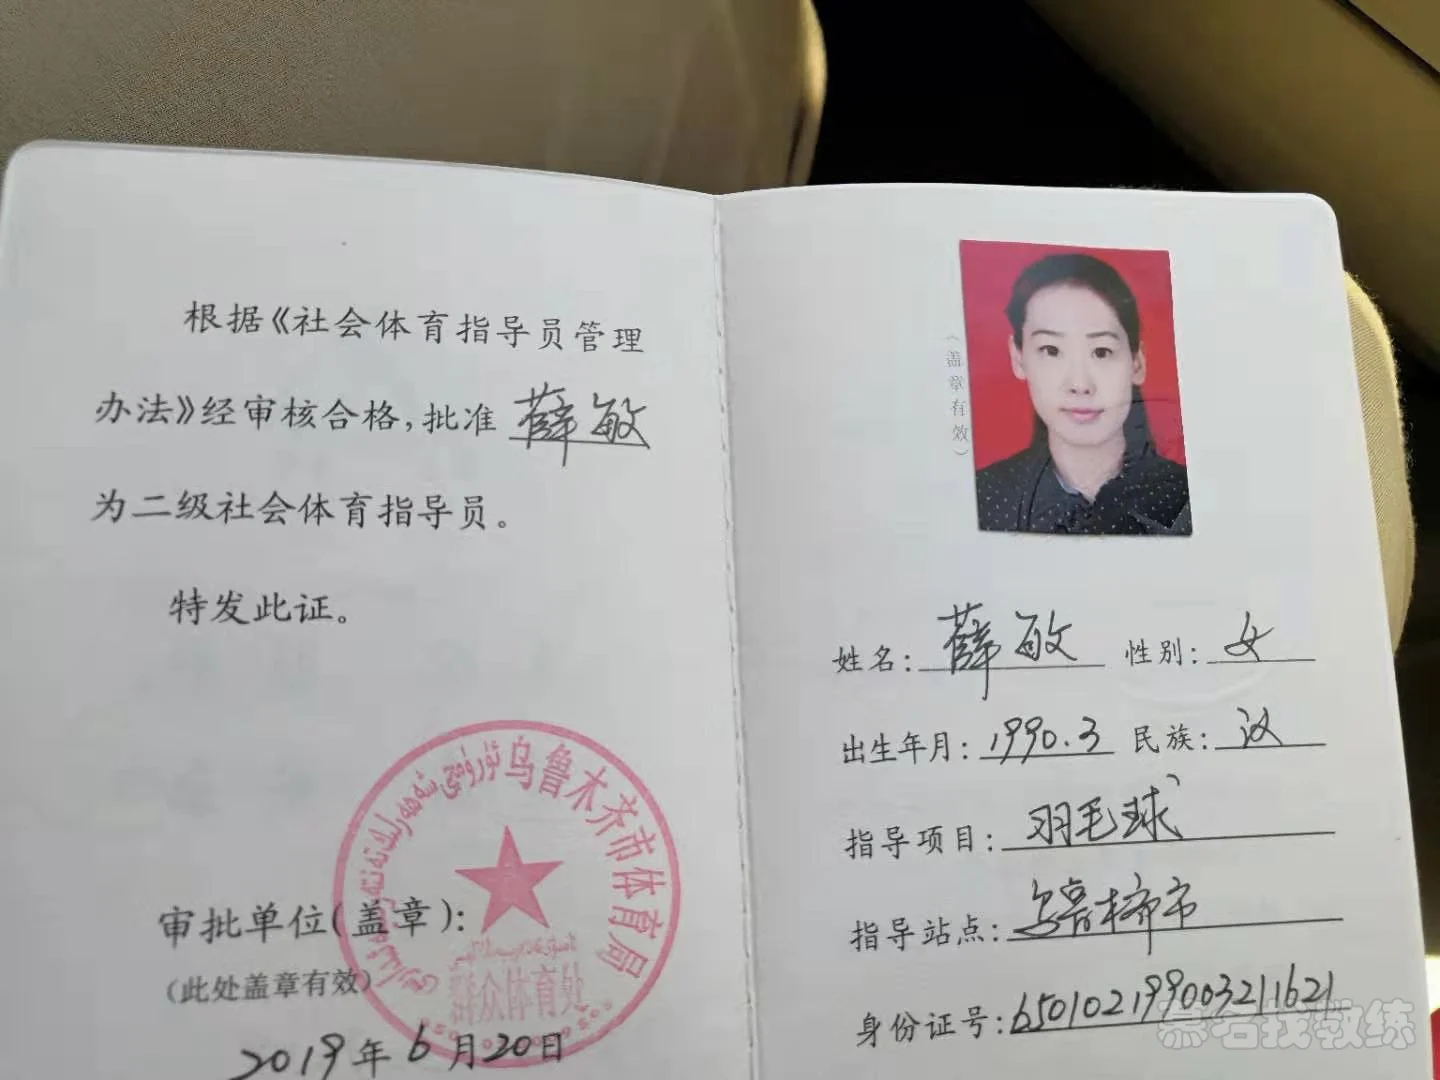 根据《社会体育指导员管理
办法》经审核合格,批准 薛敏
为二级社会体育指导员。
特发此证。
乌鲁木齐市体育局
群众体育处
审批单位(盖章):
(此处盖章有效)
2019年6月20日
(盖章有效)
姓名: 薛敏 性别: 女
出生年月: 1990.3 民族: 汉
指导项目: 羽毛球
指导站点: 乌鲁木齐市
身份证号: 650102199003211621
慕名找教练